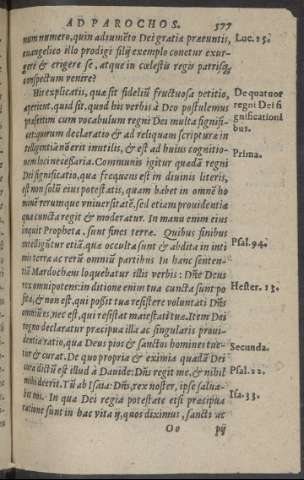 AD PAROCHOS. 577
num numero, quin adiumēto Dei gratia præeuntis, Luc. 15.
euangelico illo prodigi filij exemplo conetur exur-
gere & erigere se, atque in cœlestis regis patrisq́;
conspectum venire?
His explicatis, quæ sit fidelium fructuosa petitio,
aperient, quid sit, quod his verbis à Deo postulemus De quatuor
præsertim cum vocabulum regni Dei multa signifi- regni Dei si
cet: quorum declaratio & ad reliquam scripturæ in gnificationi
telligentiā nō erit inutilis, & est ad huius cognitio- bus.
nem loci necessaria. Communis igitur quædā regni Prima.
Dei significatio, quæ frequens est in diuinis literis,
est non solū eius potestatis, quam habet in omnē ho
minū rerumque vniuersitatē, sed etiam prouidentiæ
qua cuncta regit & moderatur. In manu enim eius
inquit Propheta, sunt fines terræ. Quibus finibus
intelligūtur etiā, quæ occulta sunt & abdita in inti Psal. 94.
mis terræ ac rerū omniū partibus In hanc senten-
tiā Mardochæus loquebatur illis verbis: Dñe Deus
rex omnipotens: in ditione enim tua cuncta sunt po Hester. 13.
sita, & non est, qui possit tua resistere voluntati Dñs
omniū es, nec est, qui resistat maiestati tuæ. Item Dei
regno declaratur præcipua illa ac singularis proui-
dentiæ ratio, qua Deus pios & sanctos homines tue-
tur & curat. De quo propria & eximia quadā Dei Secunda.
cura dictū est illud à Dauide: Dñs regit me, & nihil Psal. 22.
mihi deerit. Tū ab Isaia: Dñs, rex noster, ipse salua-
bit nos. In qua Dei regia potestate etsi præcipua Isa. 33.
ratione sunt in hac vita ij, quos diximus, sancti ac
Oo pij